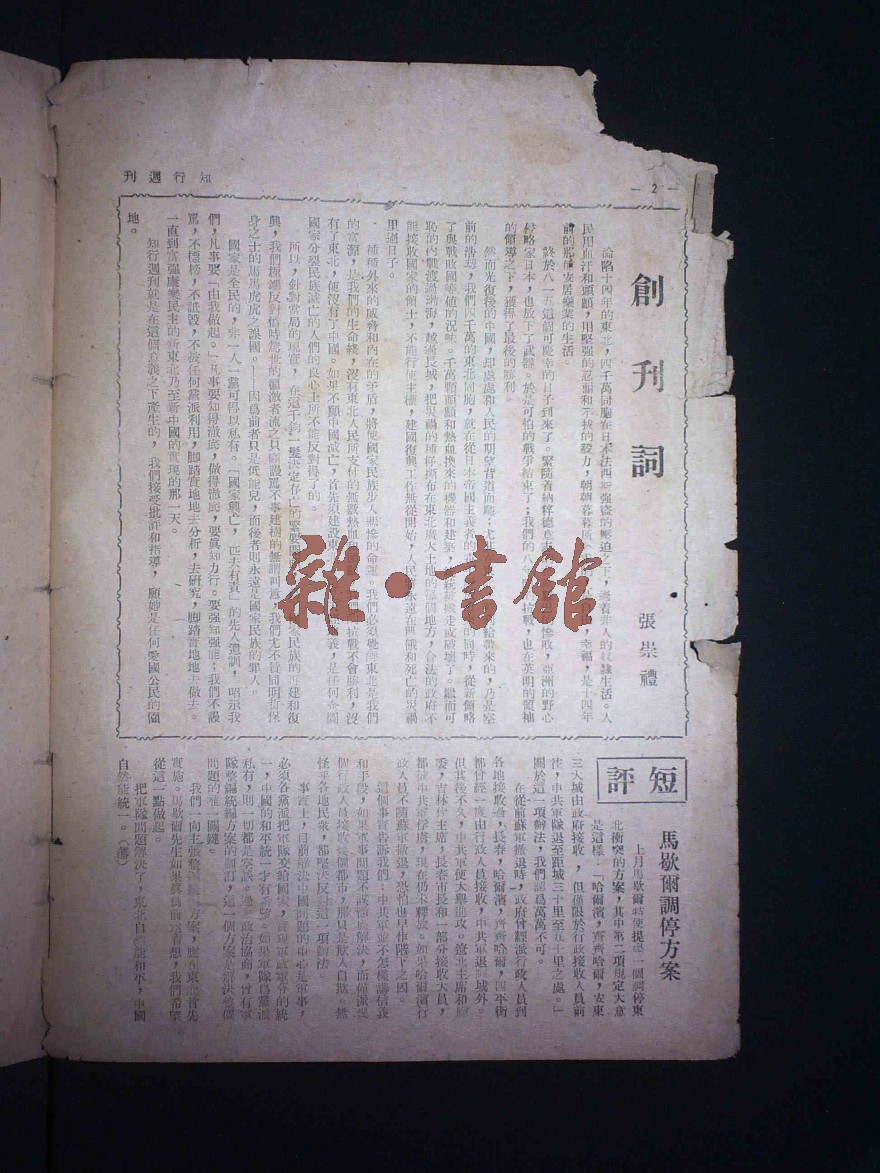 知行週刊
— 2 —
創刊詞
張崇禮
淪陷十四年的東北,四千萬同胞在日本法西斯強盜的壓迫之下,過着非人的奴隸生活。人
民用血汗和頭顱,用堅強的忍耐和不拔的毅力,朝朝暮暮
幸福,是十四年
前的那種安居樂業的生活。
終於八一五這個可慶幸的日子到來了。緊隨着納粹德意志
慘敗,亞洲的野心
侵略家日本,也放下了武器。於是可怕的戰爭結束了;我們的八
抗戰,也在英明的領袖
的領導之下,獲得了最後的勝利。
然而光復後的中國,却處處和人民的期望背道而馳;尤
給帶來的,乃是空
前的浩劫,我們四千萬的東北同胞,就在從日本帝國主義者的
的同時,從新領略
了與戰敗國等值的況味。千萬顆頭顱和熱血換來的機器和建築,
搬走或破壞了。繼而可
恥的內戰渡過渤海,越過長城,把災禍的種籽散布在東北廣大土地的每個地方,合法的政府不
能接收國家的領土,不能行使主權,建國復興工作無從開始,人民
永遠在飢餓和死亡的災禍
里過日子。
種種外來的威脅和內在的矛盾,將使國家民族步入悲慘的命運。我們必須覺得東北是我們
的富源,是我們的生命綫,沒有東北人民所支付的無數熱血和
抗戰不會勝利,沒
有了東北,便沒有了中國。如果不願中國滅亡,首先須建設東
義,是任何企圖
國家分裂民族滅亡的人們的良心上所不能反對得了的。
所以,針對當局的現實,在這千鈞一髮決定存亡的緊要關
家民族的再建和復
興,我們極端反對憤時駡世的偏激者流之只顧謾駡不事建樹的無謂叫囂。我們尤不贊同明哲保
身之士的馬馬虎虎之誤國。——因爲前者只是低能兒,而後者則永遠是國家民族的罪人。
國家是全民的,非一人一黨可得以私有。「國家興亡,匹夫有責」的先人遺訓,昭示我
們,凡事要「由我做起。」凡事要知得澈底,做得澈底,要眞知力行。要強知強能;我們不謾
駡,不標榜,不詆毀,不被任何黨派利用,脚踏實地地去分析,去研究,脚踏實地地去做去。
一直到富强康樂民主的新東北乃至新中國的實現的那一天。
知行週刊就是在這個意義之下產生的,我們接受批評和指導,願她是任何愛國公民的園
地。
短評
馬歇爾調停方案
上月馬歇爾特使提出一個調停東
北衝突的方案,其中第二項規定大意
是這樣:「哈爾濱,齊齊哈爾,安東
三大城由政府接收,但僅限於行政接收人員前
往,中共軍隊退至距城三十里至五十里之處。」
關於這一項辦法,我們認爲萬萬不可。
在從前蘇軍撤退時,政府曾經派行政人員到
各地接收過,長春,哈爾濱,齊齊哈爾,四平街
都曾經一度由行政人員接收,中共軍退
城外。
但其後不久,中共軍便大舉進攻。遼北主席和
委,吉林
主席,長春市長和一部分接收大員,
都被中共軍俘虜,現在仍未釋放。如果哈爾濱行
政人員不隨蘇軍撤退,恐怕也早作階下之囚。
這個事實告訴我們:中共軍並不怎樣講信義
和手段,如果軍事問題不設法
解決,而僅派幾
個行政人員接收幾個都市,那只是欺人自欺。無
怪乎各地民衆,都堅決反對這一項辦法。
事實上,目前解決中國問題的中心是軍事,
必須各黨派把軍隊交給國家,實現軍政軍令的統
一,中國的和平統一才有希望。如果軍隊爲黨派
私有,則一切都是空談。過去政治協商,曾有軍
隊整編統編方案的制訂,這一個方案是解決整個
問題的唯一關鍵。
我們一向主張整編統
方案,應在東北首先
實施。馬歇爾先生如果真爲前
着想,我們希望
從這一點做起。
把軍隊問題解決了,東北自然能和平,中國
自然能統一。